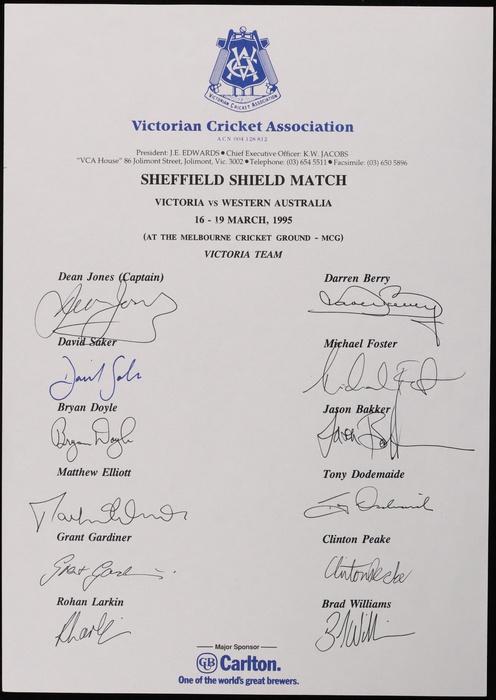 VCA
VICTORIAN CRICKET ASSOCIATION
Victorian Cricket Association
ACN 004 128 812
President: J.E. EDWARDS ● Chief Executive Officer: K.W. JACOBS
"VCA House" 86 Jolimont Street, Jolimont, Vic. 3002 ● Telephone: (03) 654 5511 ● Facsimile: (03) 650 5896
SHEFFIELD SHIELD MATCH
VICTORIA vs WESTERN AUSTRALIA
16 - 19 MARCH, 1995
(AT THE MELBOURNE CRICKET GROUND - MCG)
VICTORIA TEAM
Dean Jones (Captain)
Darren Berry
Dean Jones
Darren Berry
David Saker
Michael Foster
David Saker
Michael Foster
Bryan Doyle
Jason Bakker
Bryan Doyle
Jason Bakker
Matthew Elliott
Tony Dodemaide
Matthew Elliott
Tony Dodemaide
Grant Gardiner
Clinton Peake
Grant Gardiner
Clinton Peake
Rohan Larkin
Brad Williams
R Larkin
B Williams
Major Sponsor
CUB Carlton.
One of the world's great brewers.